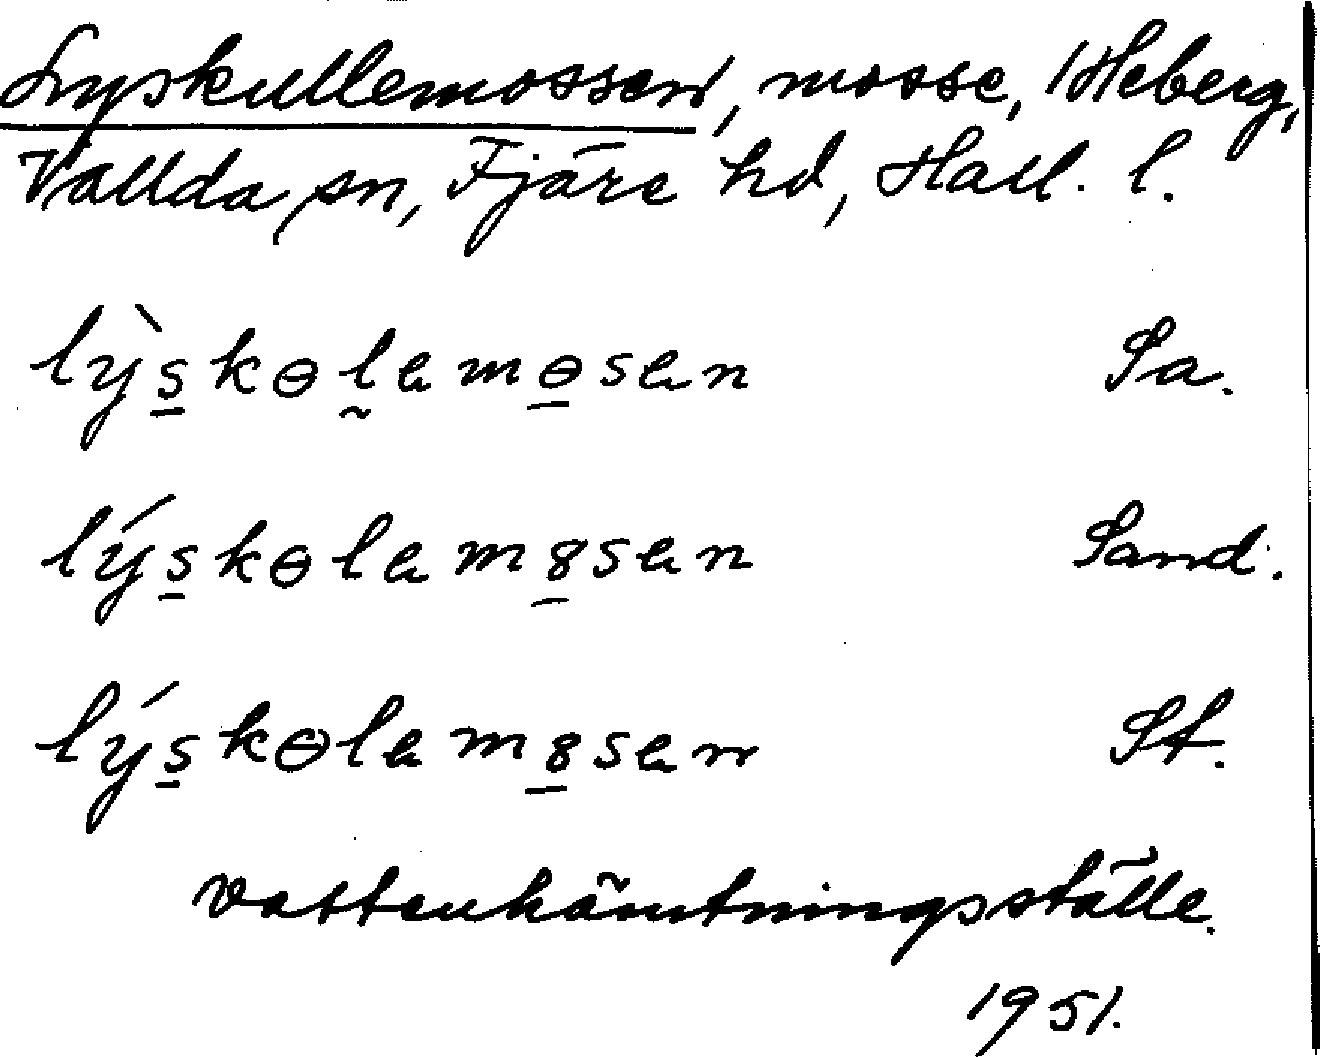 Lyskullemossen, mosse, 1 Heberg,
Vallda sn, Fjäre hd, Hall. l.
lỳs̲kɵl̰am̲ɵsan Sa.
lýs̲kɵlamo̲san Sand.
lýs̲kɵlamo̲san St.
vattenhämtningsställe.
1951.